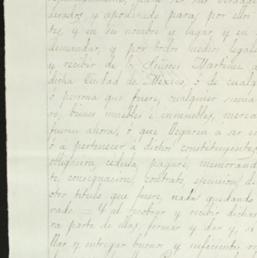 derados, y apoderado para, por ellos
tes, y en su nombre y lugar, y en
demandar, y por todos medios legales
y recibir de los Señores Martinez
dicha Ciudad de México, ó de cualq
ó persona que fuere, cualquier suma
ro, bienes muebles é inmuebles, merca
fueren ahora, ó que llegaren á ser
ó á pertenecer á dichos constituyentes,
obligacion, cédula, pagaré, memorand
te, consignacion, contrato, ejecucion, de
otro titulo que fuere, nada quedando
vado. = Y al recobrar y recibir dichas
ra parte de ellas, formar y dar y, se
llar y entregar buenos y suficientes re